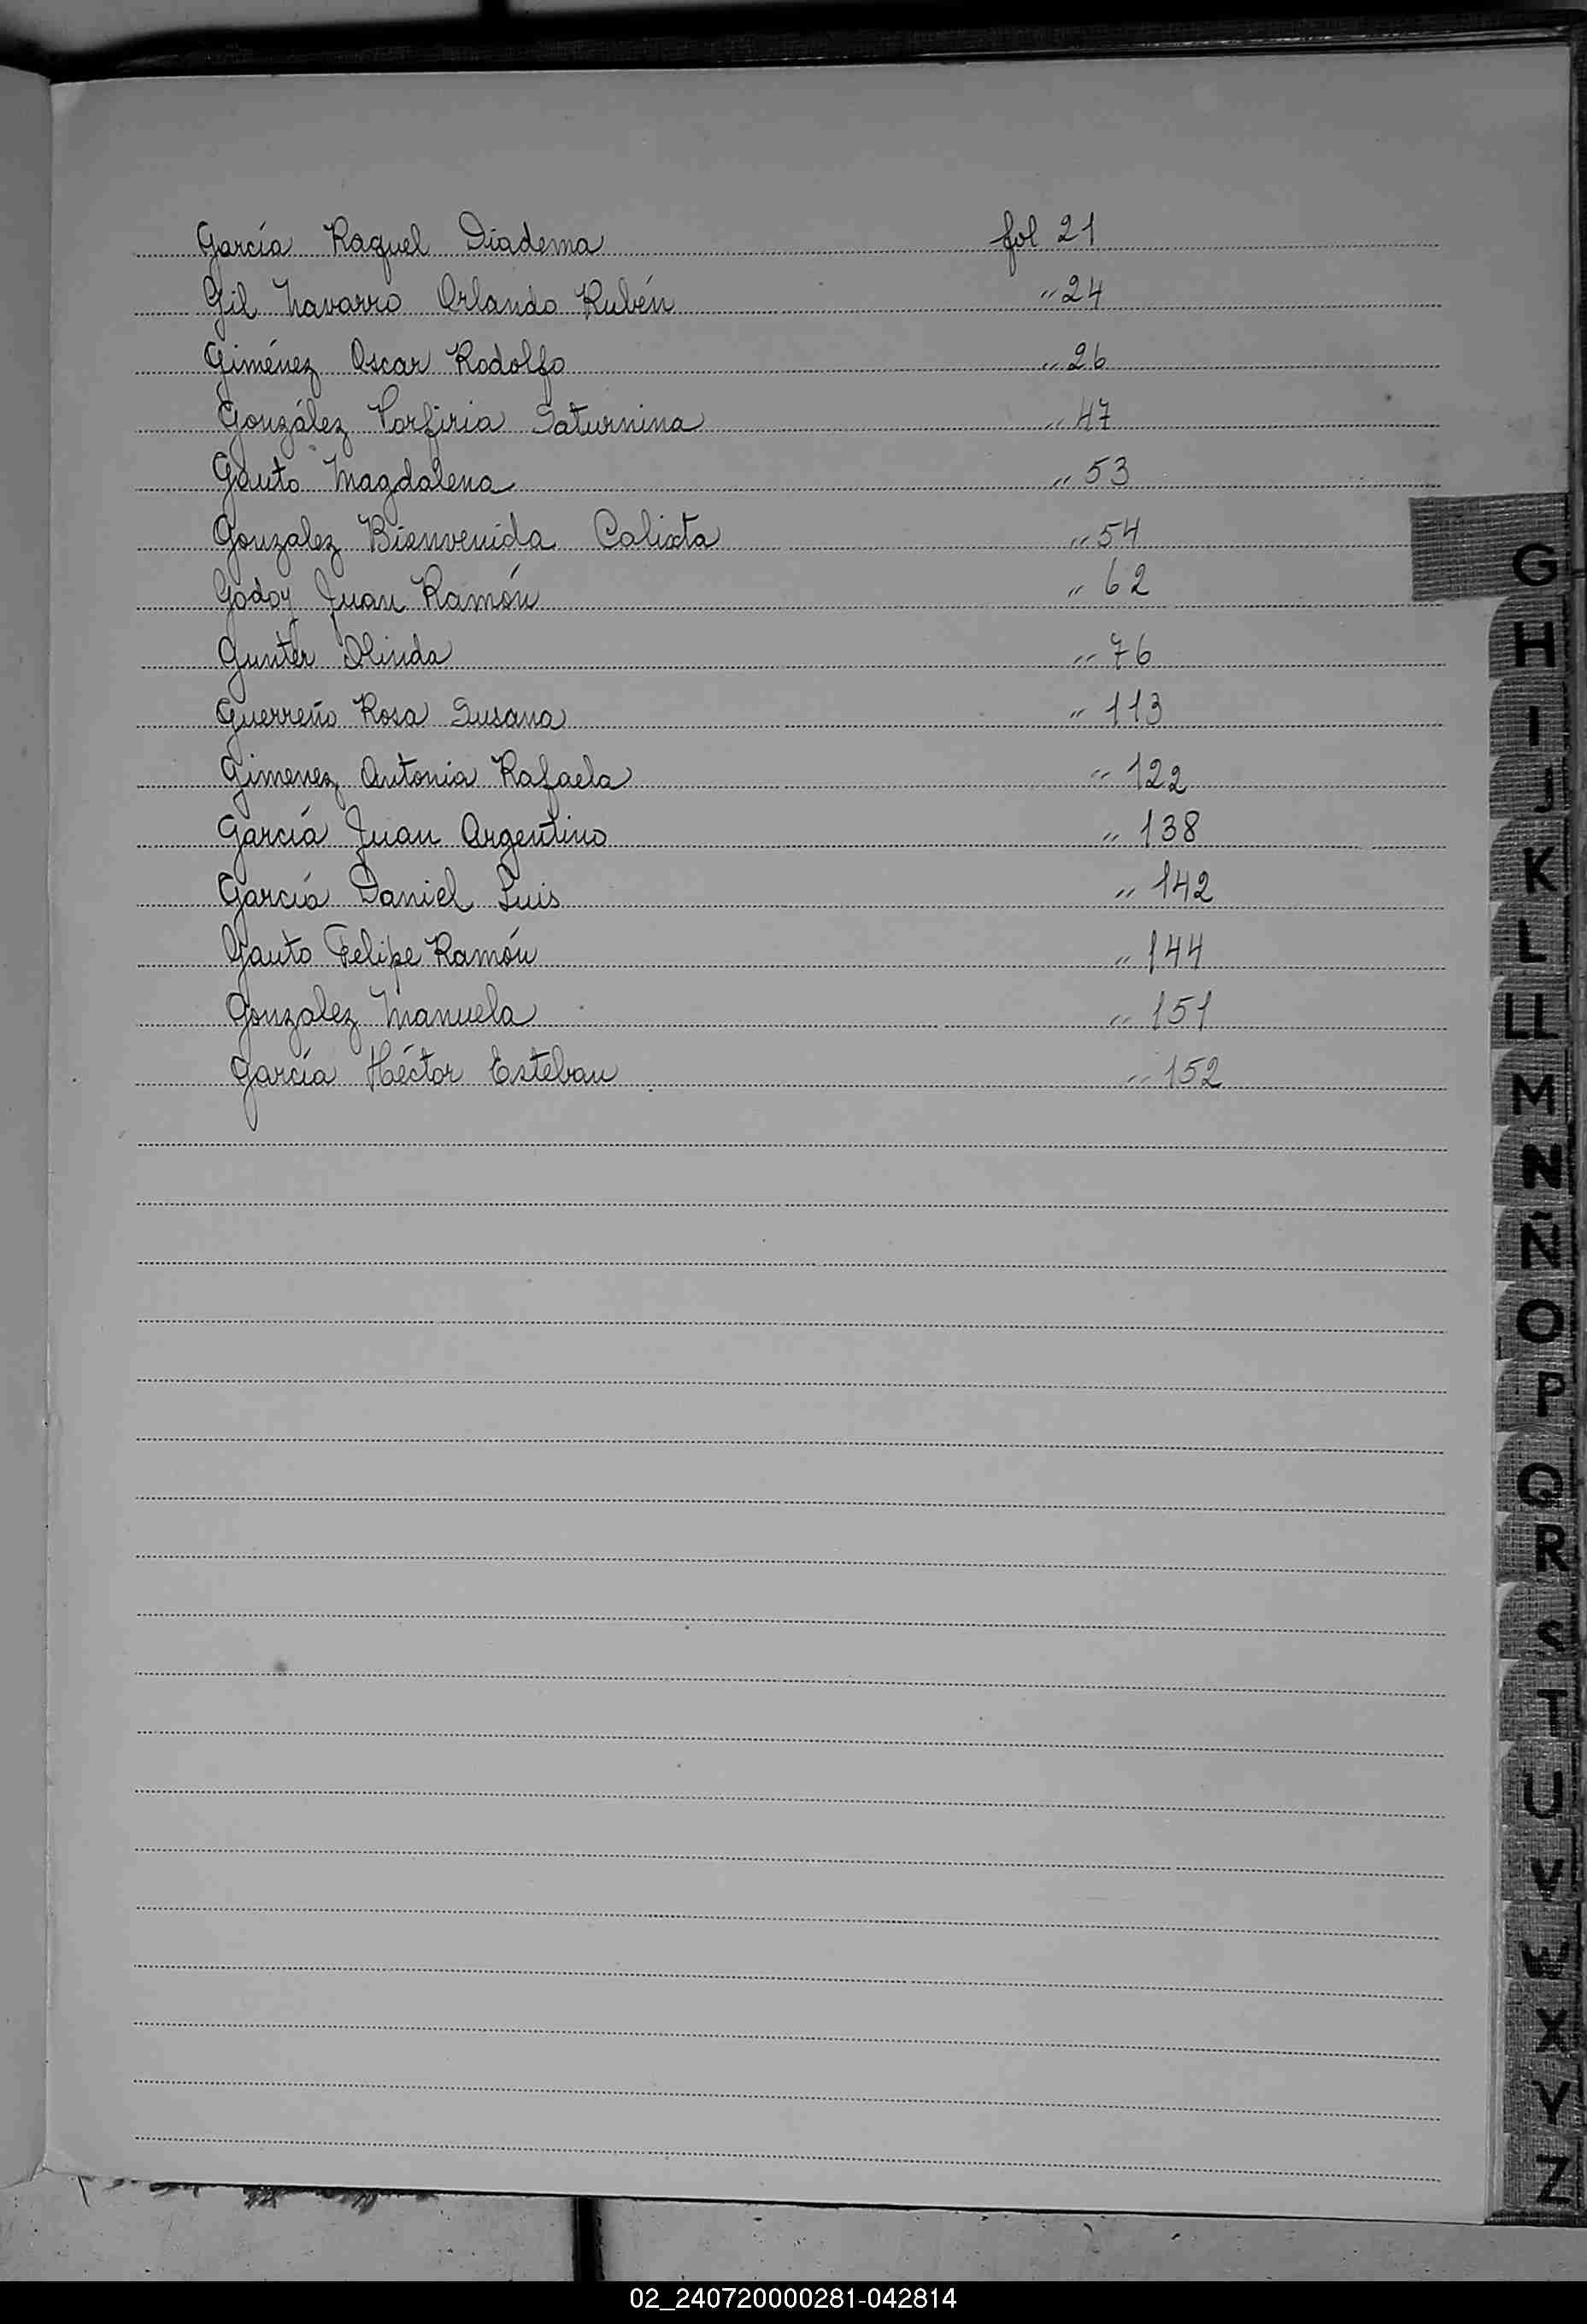 García Raquel Diadema fol 21
Gil Navarro Orlando Rubén " 24
Giménez Oscar Rodolfo " 26
González Porfiria Saturnina " 47
Gauto Magdalena " 53
Gonzalez Bienvenida Calixta " 54
Godoy Juan Ramón " 62
Gunter Olinda " 76
Guerreño Rosa Susana " 113
Gimenez Antonia Rafaela " 122
García Juan Argentino " 138
García Daniel Luis " 142
Gauto Felipe Ramón " 144
Gonzalez Manuela " 151
García Héctor Esteban " 152
G
H
I
J
K
L
LL
M
N
Ñ
O
P
Q
R
S
T
U
V
W
X
Y
Z
02_240720000281-042814